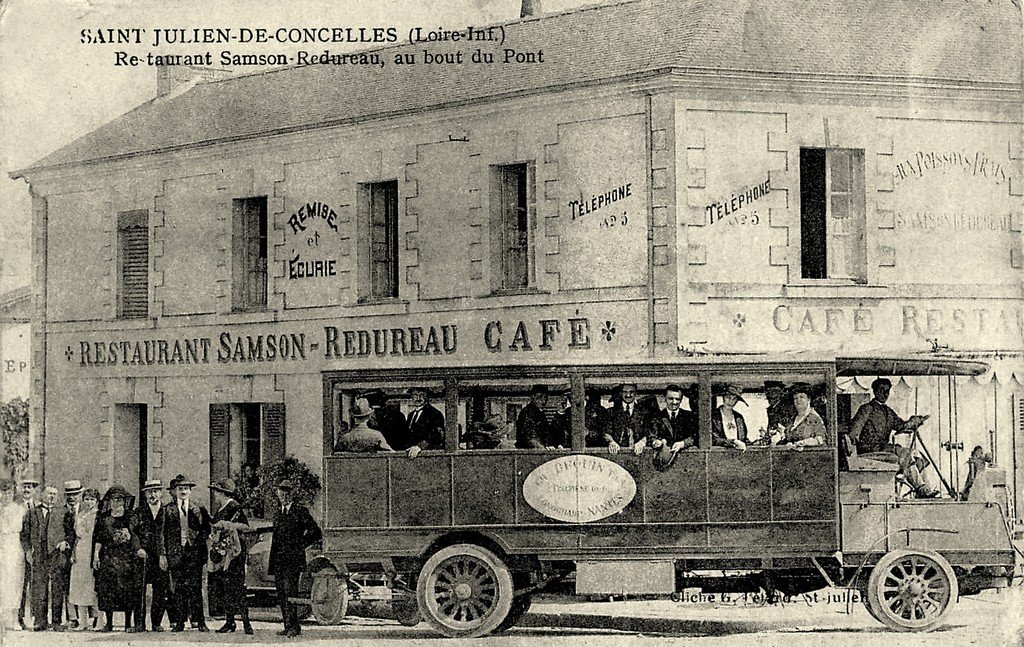 SAINT JULIEN-DE-CONCELLES (Loire-Inf.)
Re taurant Samson-Redureau, au bout du Pont
AUX POISSONS FRAIS
SAMSON REDUREAU
TÉLÉPHONE
N° 5
TÉLÉPHONE
N° 5
REMISE
et
ÉCURIE
RESTAURANT SAMSON-REDUREAU CAFÉ
CAFÉ RESTA
EP
TÉLÉPHONE
NANTES
Cliché G. St-julien